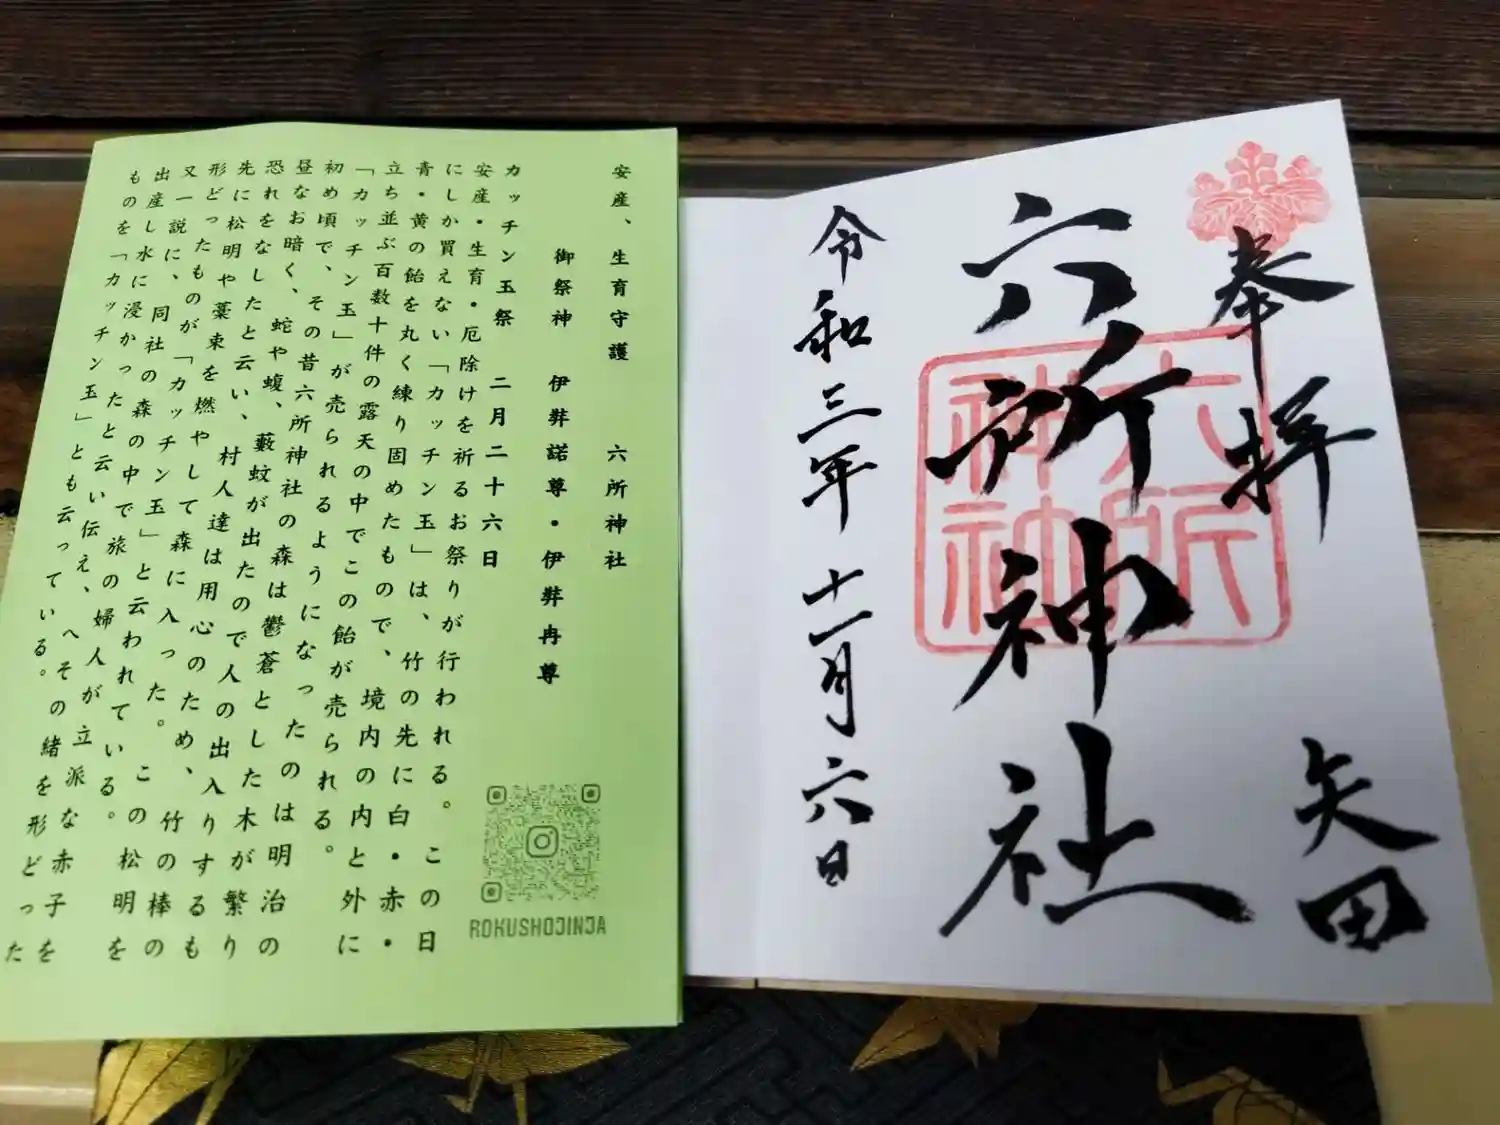 奉拝
矢田
六所神社
六所
神社
令和三年十一月六日
安産、生育守護　六所神社
御祭神　伊弉諾尊・伊弉冉尊
カッチン玉祭　二月二十六日
安産・生育・厄除けを祈るお祭りが行われる。この日
にしか買えない「カッチン玉」は、竹の先に白・赤・
青・黄の飴を丸く練り固めたもので、境内の内と外に
立ち並ぶ百数十件の露天の中でこの飴が売られる。
「カッチン玉」が売られるようになったのは明治の
初め頃で、その昔六所神社の森は鬱蒼とした木が繁り
昼なお暗く、蛇や蝮、藪蚊が出たので人の出入りするも
恐れをなしたと云い、村人達は用心のため、竹の棒の
先に松明や藁束を燃やして森に入った。この松明を
形どったものが「カッチン玉」と云われている。
又一説に、同社の森の中で旅の婦人が立派な赤子を
出産し水に浸かったと云い伝え、へその緒を形どった
ものを「カッチン玉」とも云っている。
ROKUSHOJINJA